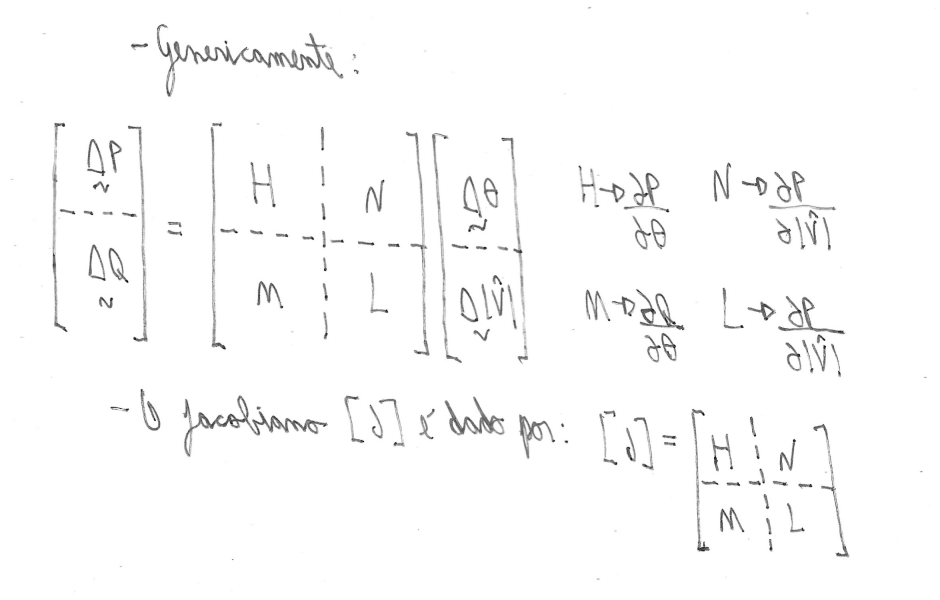 - Genericamente:
[ΔP ΔQ] = [H N M L] [Δθ Δ|V̂|]
H → ∂P/∂θ N → ∂P/∂|V̂|
M → ∂Q/∂θ L → ∂P/∂|V̂|
- O Jacobiano [J] é dado por: [J] = [H N M L]